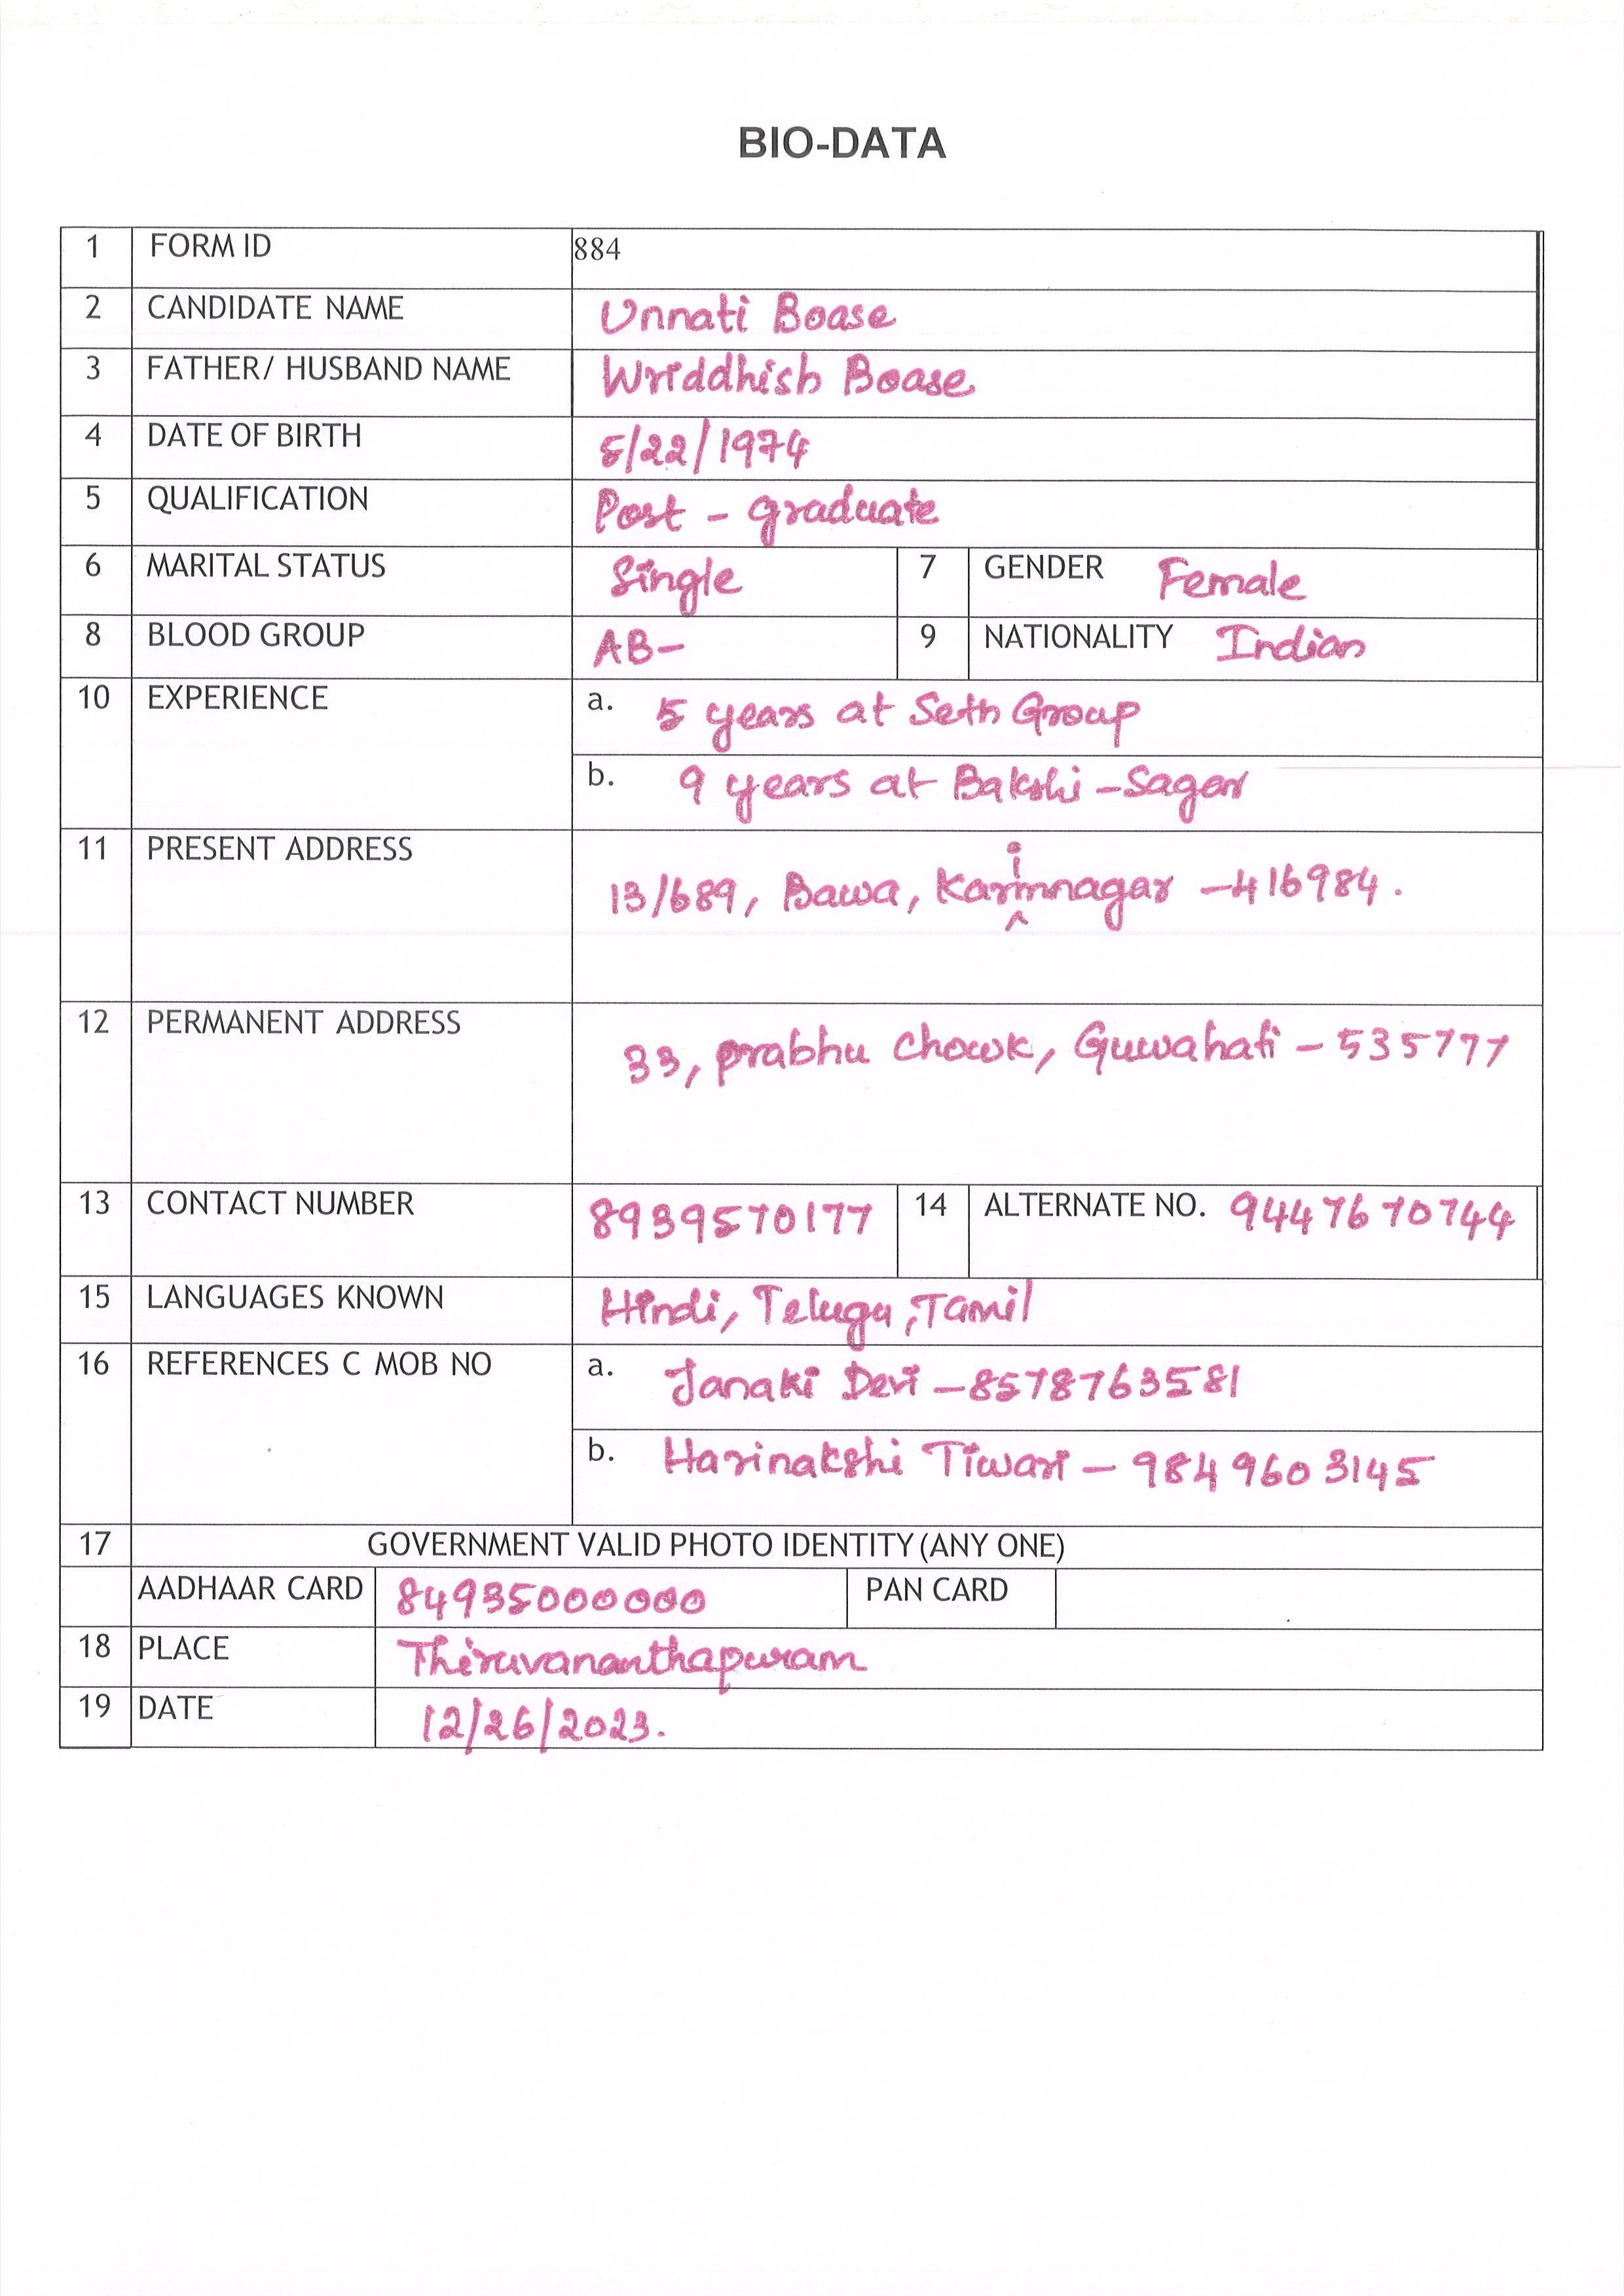 BIO-DATA
1 FORM ID 884
2 CANDIDATE NAME Unnati Boase
3 FATHER/ HUSBAND NAME Wriddhish Boase
4 DATE OF BIRTH 5/22/1974
5 QUALIFICATION Post - graduate
6 MARITAL STATUS Single 7 GENDER Female
8 BLOOD GROUP AB- 9 NATIONALITY Indian
10 EXPERIENCE a. 5 years at Seth Group
b. 9 years at Bakshi - Sagar
11 PRESENT ADDRESS 13/689, Bawa, Karimnagar - 416984.
12 PERMANENT ADDRESS 33, prabhu chowk, Guwahati - 535777
13 CONTACT NUMBER 8939570177 14 ALTERNATE NO. 9447670744
15 LANGUAGES KNOWN Hindi, Telugu, Tamil
16 REFERENCES C MOB NO a. Janaki Devi - 8578763581
b. Harinakshi Tiwari - 9849603145
17 GOVERNMENT VALID PHOTO IDENTITY (ANY ONE)
AADHAAR CARD 84935000000 PAN CARD
18 PLACE Thiruvananthapuram
19 DATE 12/26/2023.